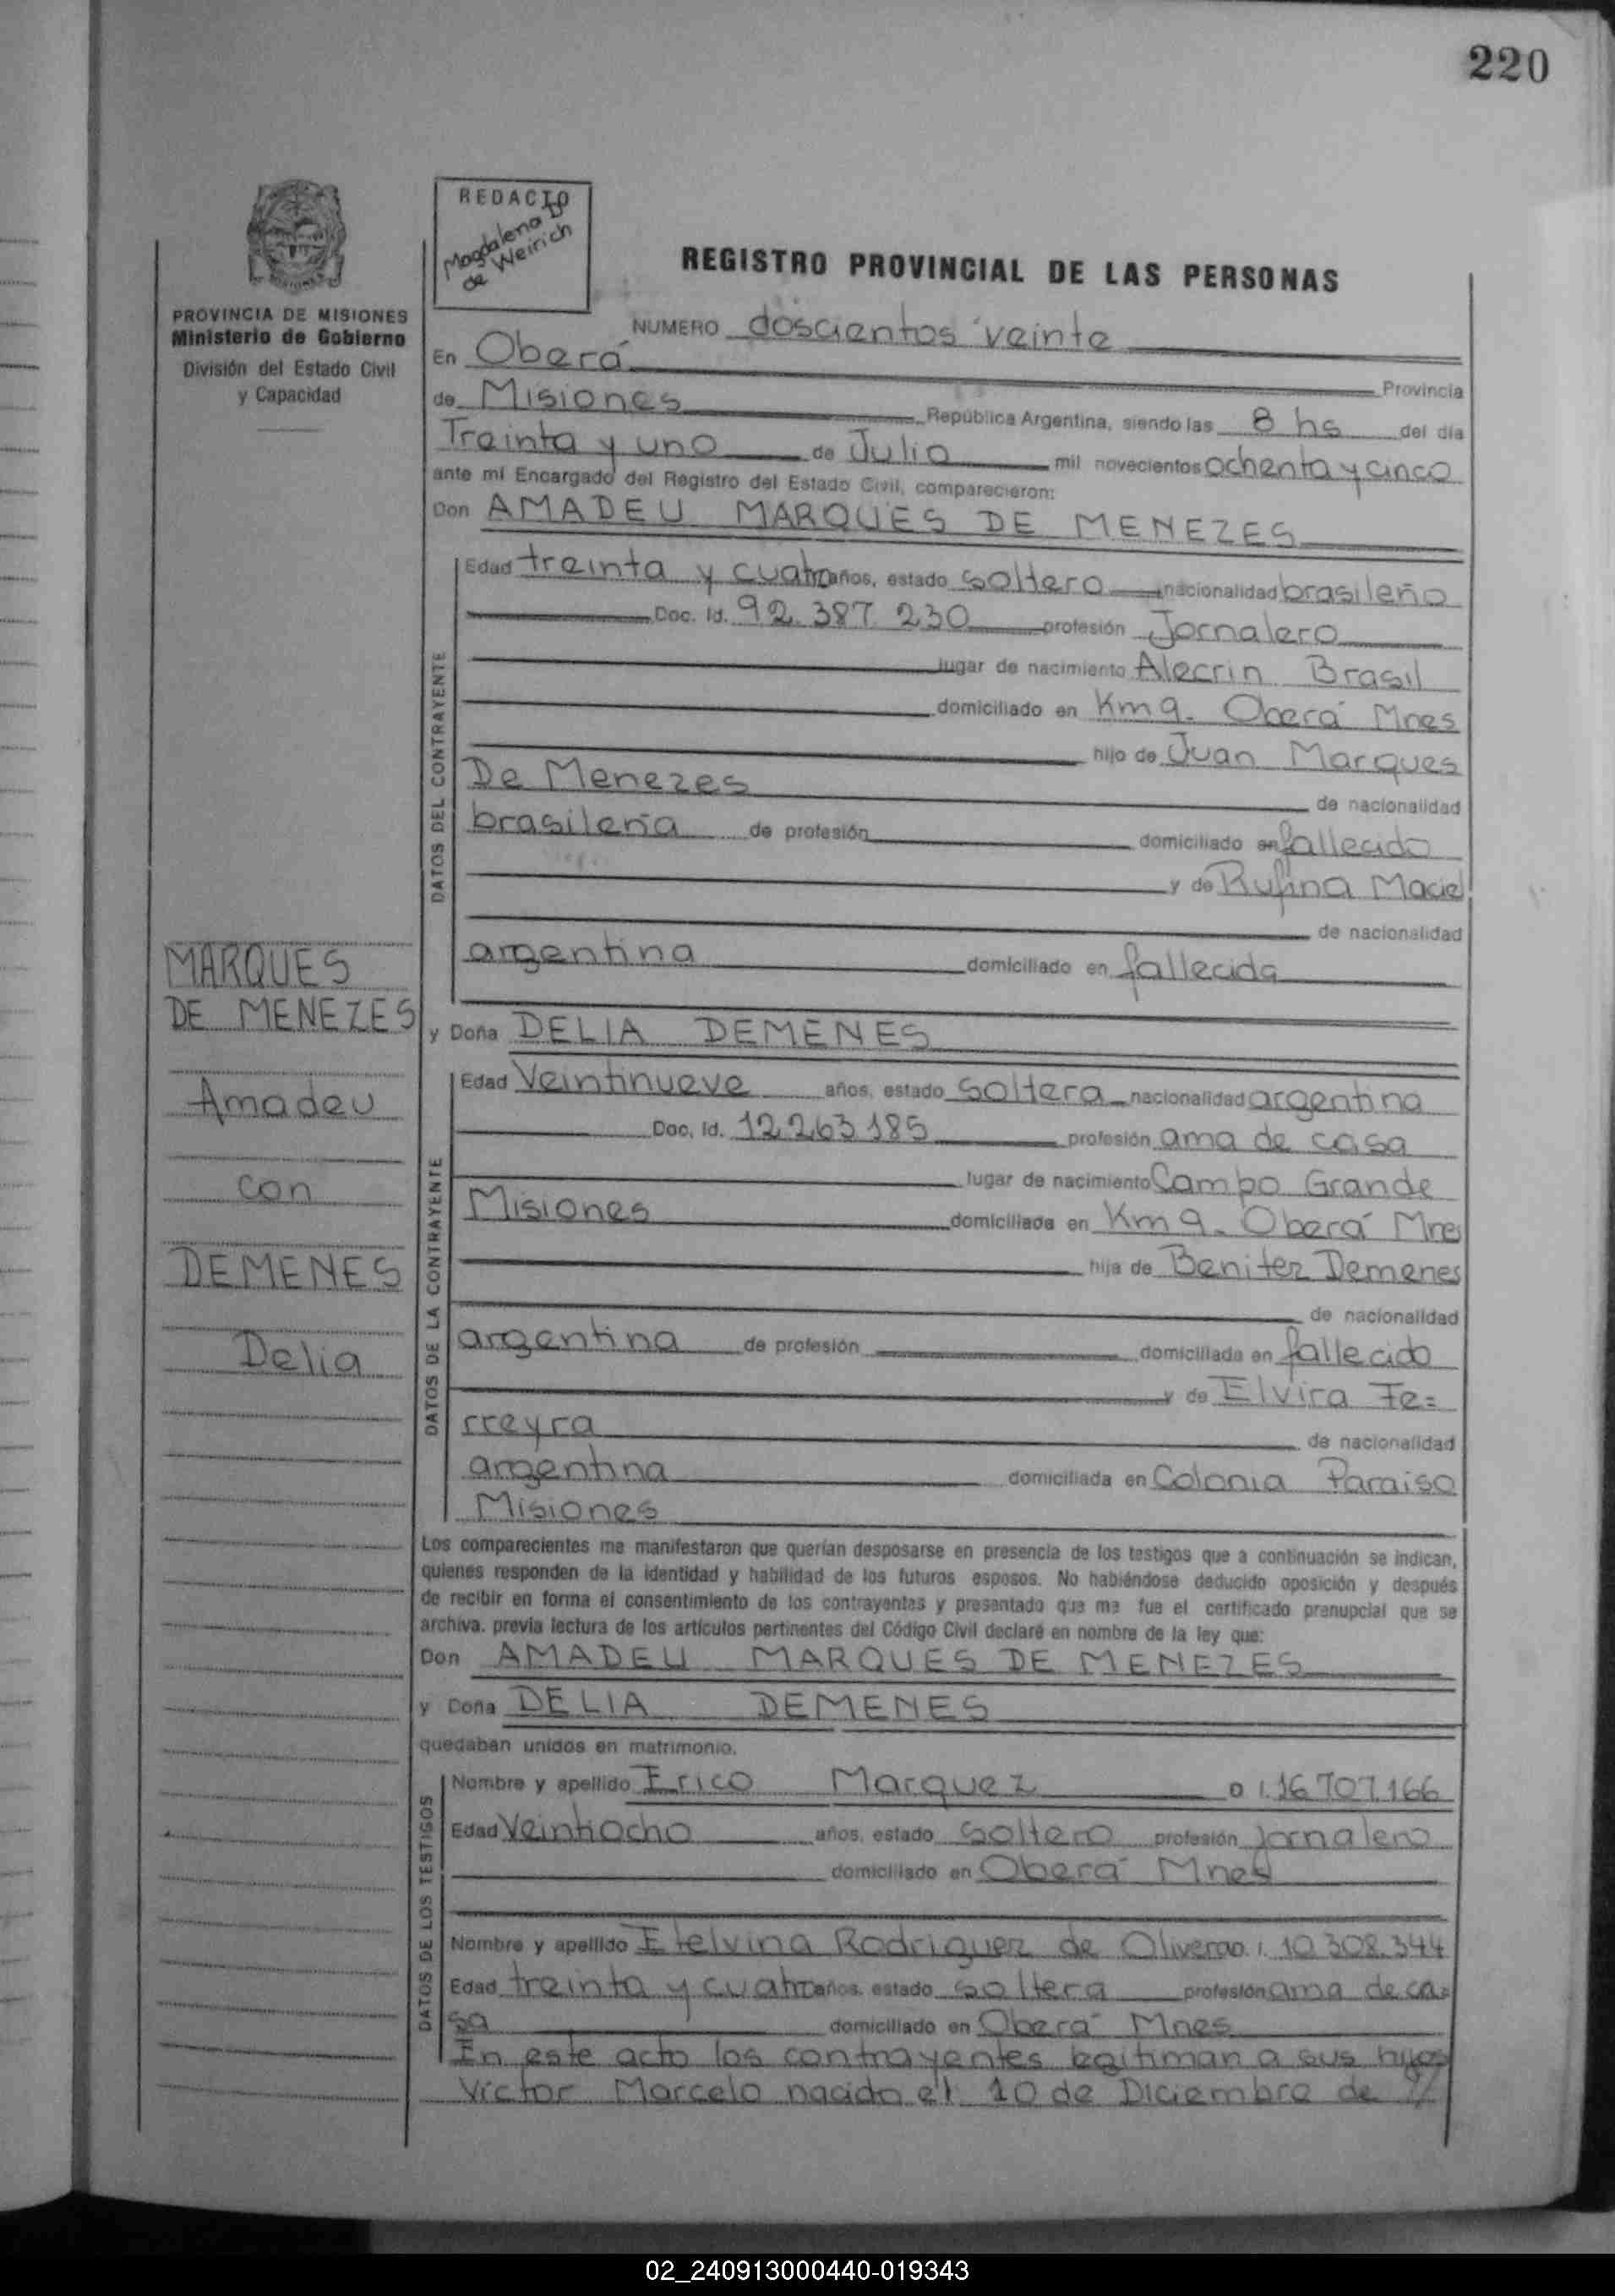 220
REDACTO
Magdalena D
de Weirich
REGISTRO PROVINCIAL DE LAS PERSONAS
PROVINCIA DE MISIONES
Ministerio de Gobierno
División del Estado Civil
y Capacidad
NUMERO doscientos veinte
En Oberá Provincia
de Misiones República Argentina, siendo las 8 hs del día
Treinta y uno de Julio mil novecientos ochenta y cinco
ante mí Encargado del Registro del Estado Civil, comparecieron:
Don AMADEU MARQUES DE MENEZES
DATOS DEL CONTRAYENTE
Edad treinta y cuatro años, estado soltero nacionalidad brasileño
Doc. Id. 92.387.230 profesión Jornalero
lugar de nacimiento Alecrin Brasil
domiciliado en Km 9. Oberá Mnes
hijo de Juan Marques
De Menezes de nacionalidad
brasileña de profesión domiciliado en fallecido
y de Rufina Maciel
de nacionalidad
argentina domiciliado en fallecida
MARQUES
DE MENEZES
Amadeu
con
DEMENES
Delia
y Doña DELIA DEMENES
DATOS DE LA CONTRAYENTE
Edad Veintinueve años, estado soltera nacionalidad argentina
Doc. Id. 12.263.185 profesión ama de casa
lugar de nacimiento Campo Grande
Misiones domiciliada en Km 9. Oberá Mnes
hija de Benitez Demenes
de nacionalidad
argentina de profesión domiciliada en fallecido
y de Elvira Fe=
rreyra de nacionalidad
argentina domiciliada en Colonia Paraiso
Misiones
Los comparecientes me manifestaron que querían desposarse en presencia de los testigos que a continuación se indican,
quienes responden de la identidad y habilidad de los futuros esposos. No habiéndose deducido oposición y después
de recibir en forma el consentimiento de los contrayentes y presentado que me fue el certificado prenupcial que se
archiva. previa lectura de los artículos pertinentes del Código Civil declaré en nombre de la ley que:
Don AMADEU MARQUES DE MENEZES
y Doña DELIA DEMENES
quedaban unidos en matrimonio.
DATOS DE LOS TESTIGOS
Nombre y apellido Erico Marquez 0 1.16 707.166
Edad Veintiocho años, estado soltero profesión jornalero
domiciliado en Oberá Mnes
Nombre y apellido Etelvina Rodriguez de Olivera 10.308.344
Edad treinta y cuatro años. estado soltera profesión ama de ca=
sa domiciliado en Oberá Mnes
En este acto los contrayentes legitiman a sus hijos
Víctor Marcelo nacido el 10 de Diciembre de //
02_240913000440-019343